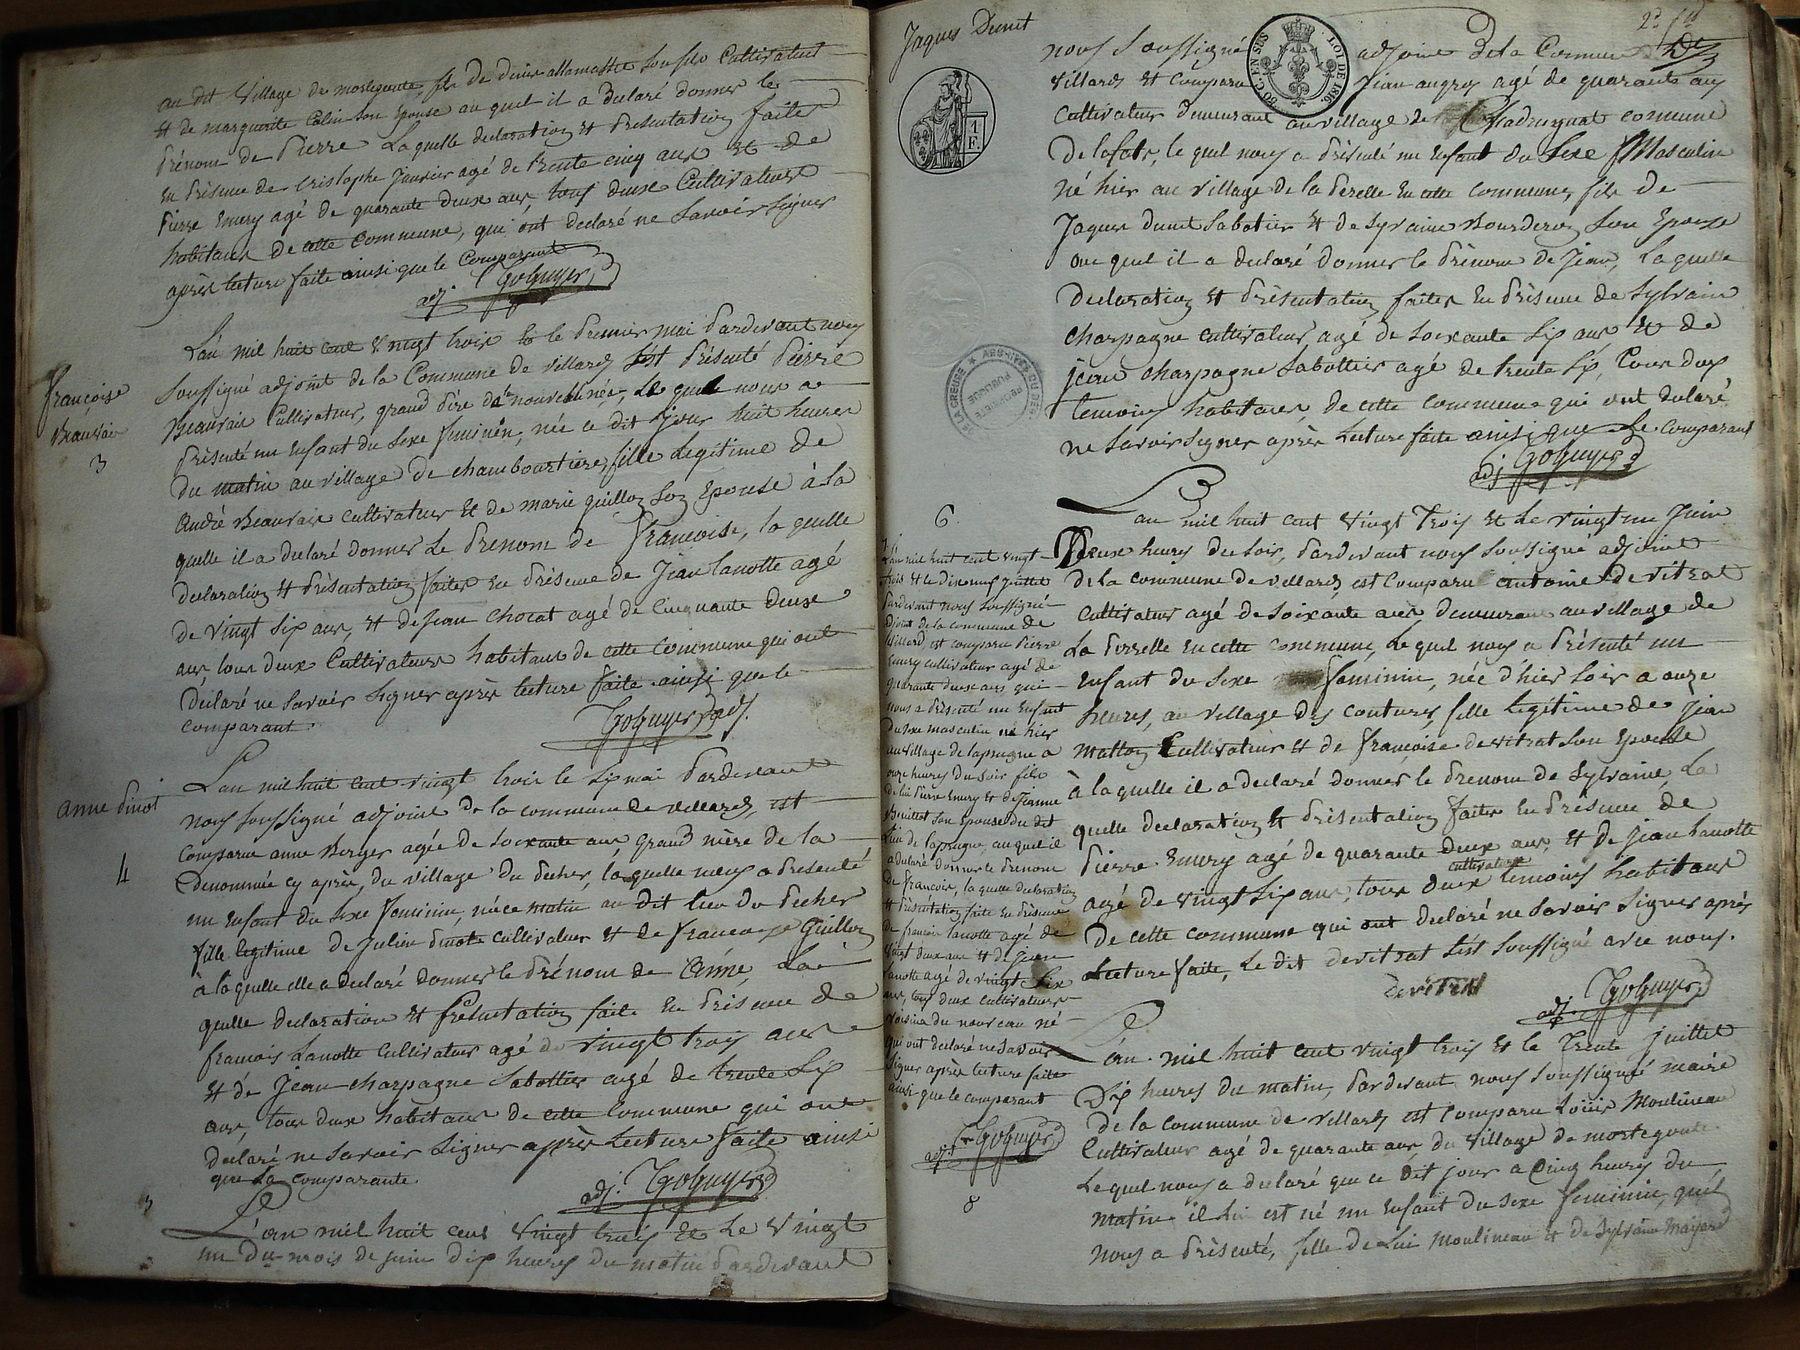 au dit Village de mortegoute, fils De denis allamassee son fils Cultivateur
et de marguerite Colin son Epouse au quel il a declaré donner le
Prénom de Pierre La quelle declaration et Presentation faite
En Présence de Cristophe Janvier agé de trente cinq ans et de
Pierre Emery agé de quarante deux ans, tous deux Cultivateurs
habitans de cette Commune, qui ont declaré ne Savoir signer
après lecture faite ainsi que le Comparant
adj.
L'an mil huit cent vingt trois et le Premier mai Pardevant nous
Soussigné adjoint de la Commune de Villard s'est Présenté Pierre
Beauvais Cultivateur, grand Père de la nouvellenée, Le quel nous a
Présenté un Enfant du Sexe feminin, née ce dit Jour huit heures
du matin au village de chamboursiere, fille Legitime de
André Beauvais cultivateur et de marie guillon Son Epouse à la
quelle il a declaré donner Le Prenom de Françoise, la quelle
declaration et Présentation faites En Présence de Jean lamotte agé
de vingt Six ans, et de Jean Chocat agé de Cinquante deux
ans, tous deux Cultivateurs habitans de cette commune qui ont
declaré ne Savoir Signer après lecture faite ainsi que le
comparant.
adj.
françoise
Beauvais
3
L'an mil huit cent vingt trois le Six mai Pardevant
nous Soussigné adjoint de la commune de villard, est
Comparue anne Berger agée de Soixante ans grand mère de la
Denommée cy après, du village du Pecher, la quelle nous a Presenté
un Enfant du Sexe feminin, née ce matin au dit lieu du Pecher
fille legitime de Julien Pinot cultivateur et de francoise Guillon
à la quelle elle a declaré donner le Prénom de Anne, La
quelle declaration et Présentation faite En Présence de
francois Lamotte Cultivateur agé de vingt trois ans
et de Jean charpagne Sabottier agé de trente Six
ans, tous deux habitans de cette commune qui ont
declaré ne Savoir Signer après lecture faite ainsi
que La comparante
adj.
anne Pinot
4
L'an mil huit cent vingt trois et Le vingt
un du mois de juin dix heures du matin Pardevant
Jaques Dunet
1 F.
80 C. EN SUS
LOI DE 1816
nous Soussigné adjoint de la Commune de
villard est Comparu Jean augros agé de quarante ans
Cultivateur demeurant au village de commune
De lafat, le quel nous a Présenté un Enfant du Sexe Masculin
né hier au village de la Perelle En cette commune, fils de
Jaques dunet Sabotier et de Sylvaine Bourderon Son Epouse
au quel il a declaré Donner le Prénom de Jean, La quelle
declaration et Présentation faites En Présence de Sylvain
charpagne cultivateur agé de Soixante Six ans et de
jean charpagne Sabottier agé de trente Six, tous deux
temoins habitans de cette commune qui ont declaré
ne Savoir Signer après Lecture faite ainsi que Le Comparant
adj
DE LA CREUSE
ARCHIVES DU DEP
PROPRIÉTÉ
PUBLIQUE
6
L'an mil huit cent vingt Trois et Le vingt un Juin
Deux heures du Soir, Pardevant nous Soussigné adjoint
de la commune de villard, est Comparu antoine devitrat
Cultivateur agé de Soixante ans demeurant au village de
La Perrelle en cette commune, Le quel nous a Présenté un
Enfant du Sexe feminin, née d'hier Soir a onze
heures, au village des coutures, fille legitime de Jean
matton Cultivateur et de françoise devitrat Son Epouse
à la quelle il a declaré donner le Prenom de Sylvaine, La
quelle declaration et Présentation faites En Présence de
Pierre Emery agé de quarante deux ans et de Jean Lamotte
cultivateurs
agé de vingt Six ans, tous deux temoins habitans
de cette commune qui ont declaré ne Savoir Signer après
Lecture faite, Le dit devitrat S'est Soussigné avec nous.
devitrat
adj.
7
L'an mil huit cent vingt
trois et le dixneuf juillet
Pardevant nous Soussigné
adjoint de la commune de
villard, est comparu Pierre
Emery cultivateur agé de
quarante deux ans qui
nous a Présenté un Enfant
du Sexe masculin né hier
au village de lapougue a
onze heures du Soir fils
de lui Pierre Emery et de Jeanne
Son Epouse du dit
lieu de lapougue, au quel il
a declaré donner le Prenom
de francois, la quelle declaration
et Présentation faite En Présence
de francois Lamotte agé de
vingt deux ans et de Jean
Lamotte agé de vingt Six
ans, tous deux cultivateurs
voisins du nouveau né
qui ont declaré ne Savoir
Signer après lecture faite
ainsi que le comparant
adj.
8
L'an mil huit cent vingt trois et le Trente juillet
Dix heures du matin, Pardevant nous Soussigné maire
De la commune de Villard est comparu Louis Moulineau
Cultivateur agé de quarante ans, du village de mortegoute
Lequel nous a declaré que ce dit jour a Cinq heures du
matin il lui est né un Enfant du Sexe feminin, qu'il
nous a Présenté, fille de Lui Moulineau et de Sylvaine